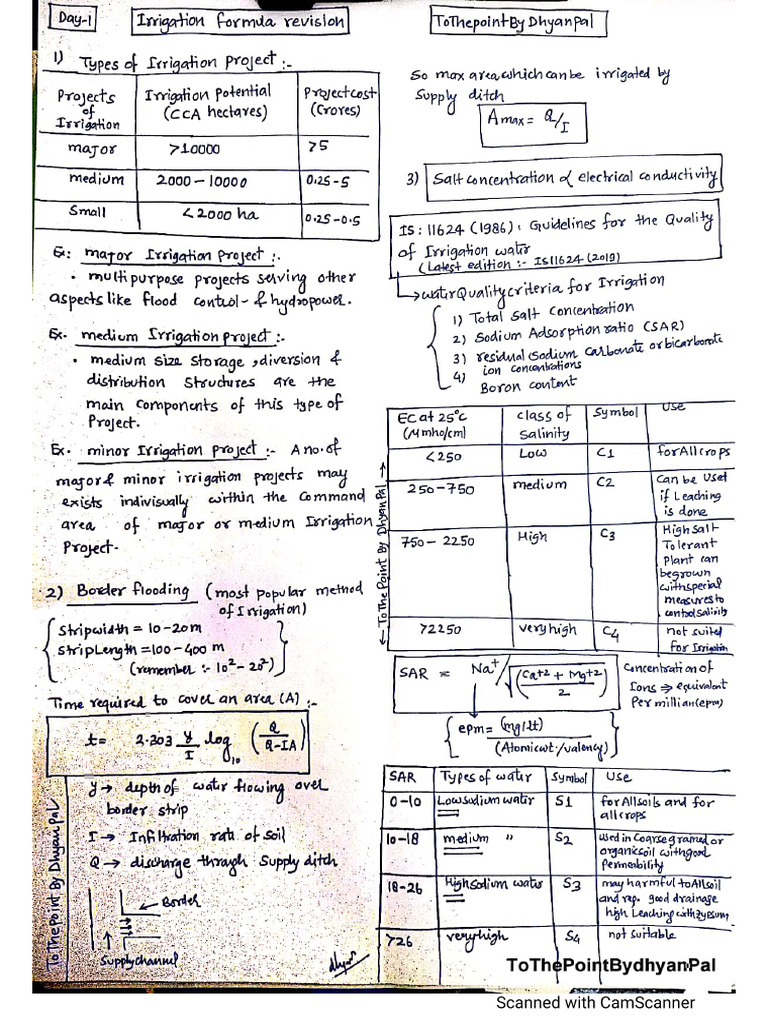 Day-1
Irrigation formula revision
ToThepointByDhyanpal
1) Types of Irrigation Project :-
Projects of Irrigation | Irrigation Potential (CCA hectares) | Project cost (Crores)
major | >10000 | >5
medium | 2000 - 10000 | 0.25 - 5
Small | < 2000 ha | 0.25 - 0.5
Ex: major Irrigation project :-
• multipurpose projects serving other
aspects like flood control & hydropower.
Ex. medium Irrigation project :-
• medium size storage, diversion &
distribution structures are the
main components of this type of
Project.
Ex. minor Irrigation project :- A no. of
major & minor irrigation projects may
exists indivisually within the command
area of major or medium Irrigation
Project.
2) Border flooding (most popular method
of Irrigation)
Strip width = 10-20m
Strip Length = 100-400 m
(remember :- 10² - 20²)
Time required to cover an area (A) :-
t = 2.303 y/I log₁₀ (Q/Q-IA)
y → depth of water flowing over
border strip
I → Infiltration rate of soil
Q → discharge through Supply ditch
← Border
Supply channel
ToThePoint By DhyanPal
So max area which can be irrigated by
Supply ditch
Amax = Q/I
3) Salt concentration α electrical conductivity
IS : 11624 (1986) : Guidelines for the Quality
of Irrigation water
(Latest edition :- IS11624 (2019)
→ water Quality criteria for Irrigation
1) Total Salt Concentration
2) Sodium Adsorption ratio (SAR)
3) residual Sodium Carbonate or bicarbonate
ion concentrations
4) Boron content
EC at 25°C (μmho/cm) | class of Salinity | Symbol | Use
<250 | Low | C1 | for All crops
250-750 | medium | C2 | Can be used if Leaching is done
750 - 2250 | High | C3 | High salt Tolerant plant can be grown with special measures to control salinity
>2250 | very high | C4 | not suited for Irrigation
← ToThe Point By DhyanPal →
SAR = Na⁺/√((Ca+2 + Mg+2)/2)
Concentration of
Ions ⇒ equivalent
Per millian (epm)
epm = (mg/lt)/(Atomic wt./valency)
SAR | Types of water | Symbol | Use
0-10 | Low sodium water | S1 | for All soils and for all crops
10-18 | medium " | S2 | used in Coarse grained or organic soil with good Permeability
18-26 | High Sodium water | S3 | may harmful to All soil and req. good drainage high Leaching with zypsum
>26 | very high | S4 | not suitable
ToThePointBydhyanPal
Scanned with CamScanner